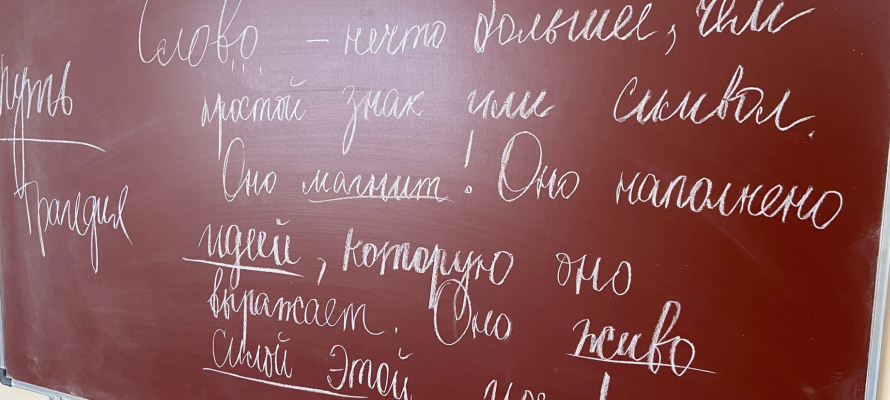 Слово – нечто большее, чем
простой знак или символ.
Оно магнит! Оно наполнено
идеей, которую оно
выражает. Оно живо
силой этой
путь
трагедия